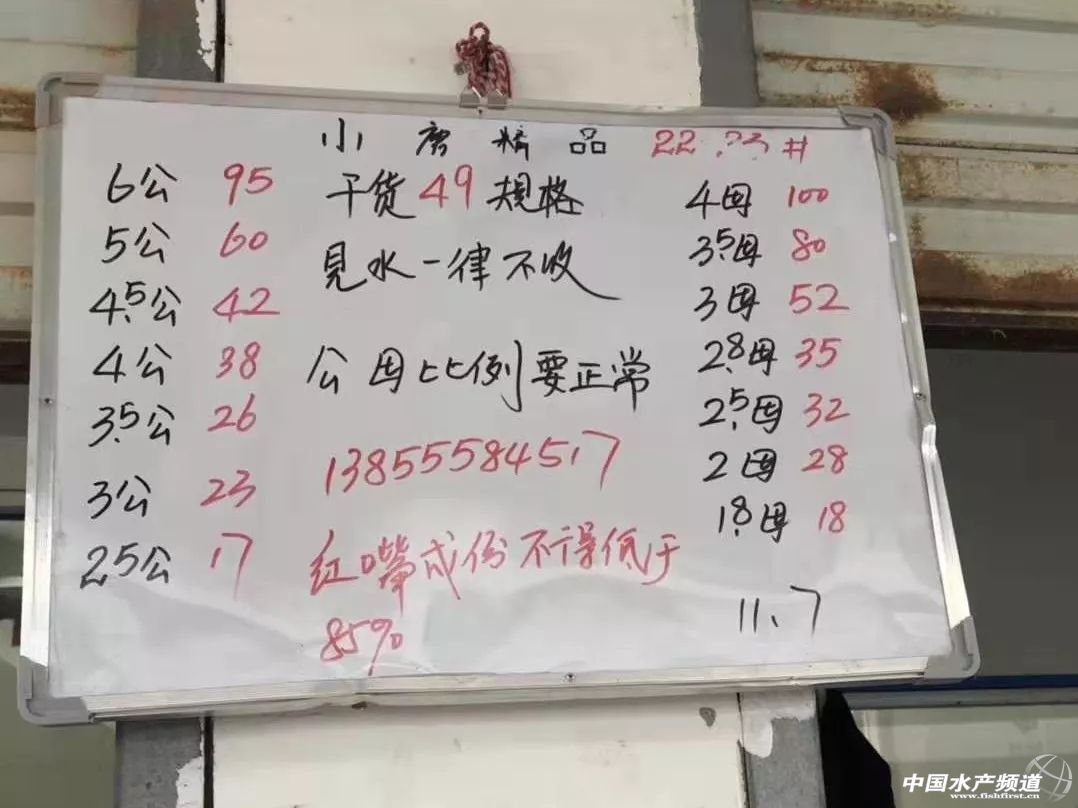 小唐精品 22.23#
6公 95
5公 60
4.5公 42
4公 38
3.5公 26
3公 23
2.5公 17
干货49规格
見水一律不收
公母比例要正常
13855584517
红嘴成份不得低于
85%
4母 100
3.5母 80
3母 52
2.8母 35
2.5母 32
2母 28
1.8母 18
11.7
中国水产频道
www.fishfirst.cn